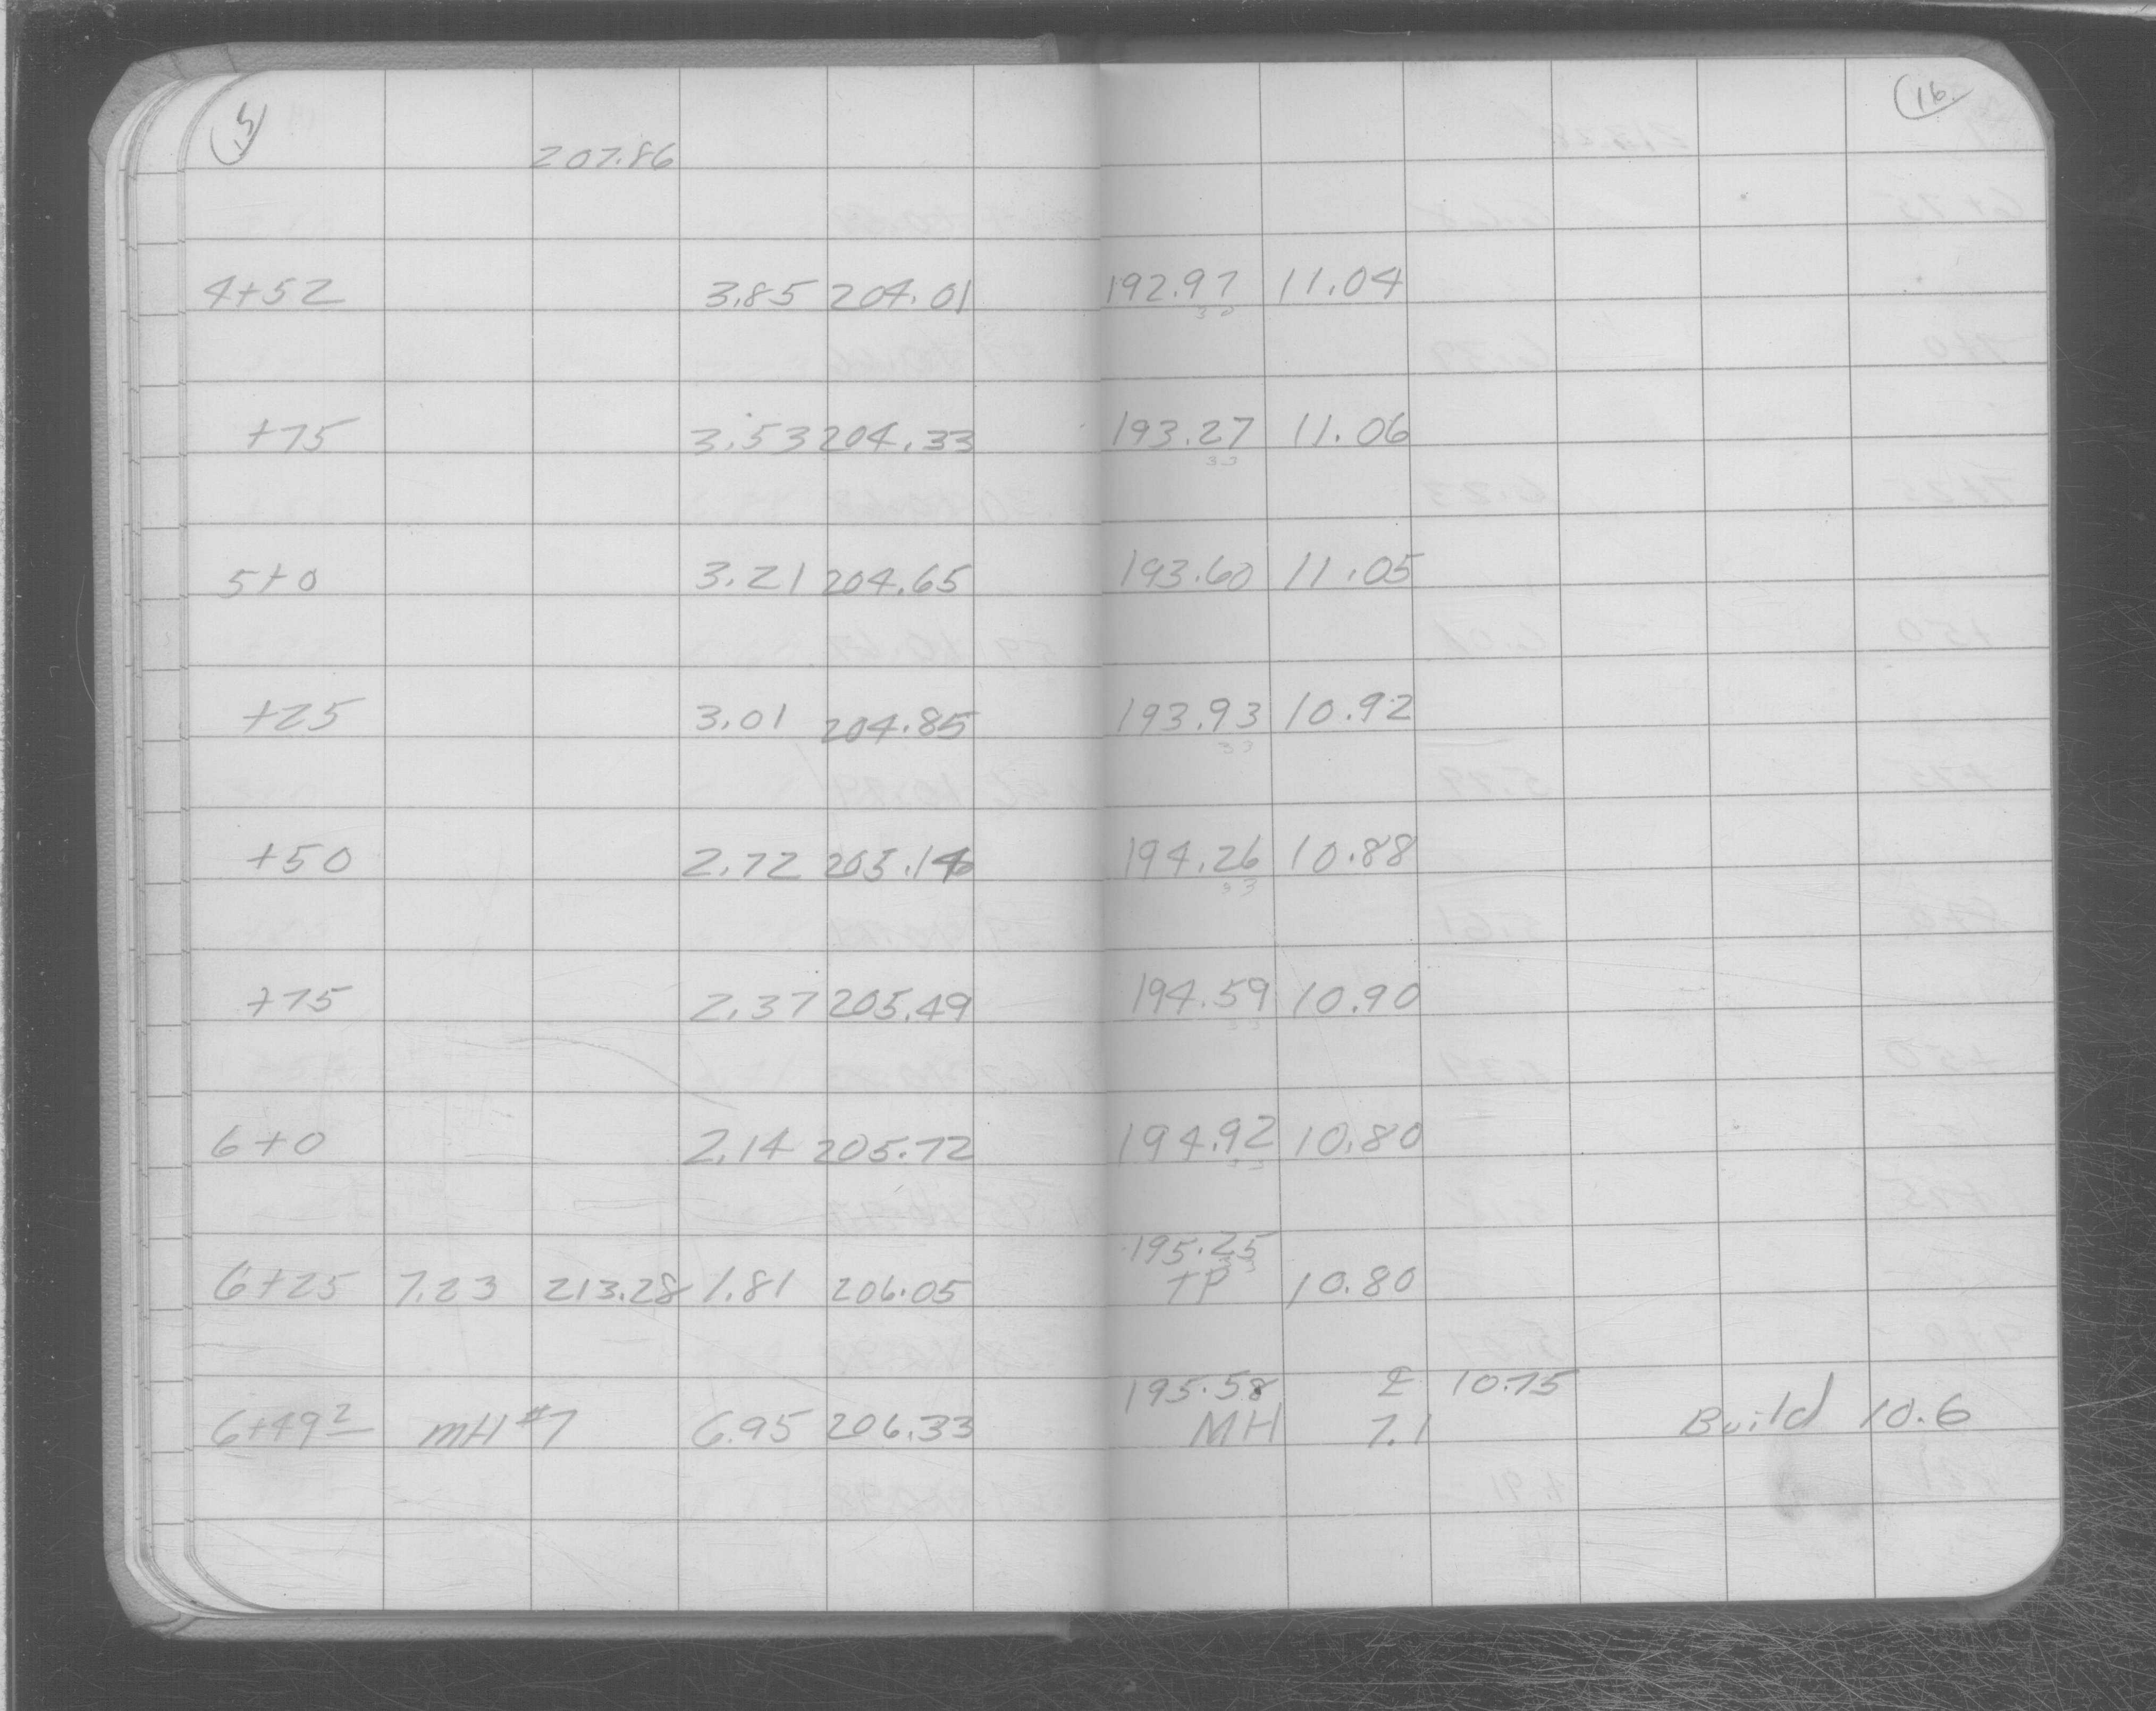 15 16
207.86
4+52 3.85 204.01 192.97 11.04
30
+75 3.53 204.33 193.27 11.06
33
5+0 3.21 204.65 193.60 11.05
+25 3.01 204.85 193.93 10.92
33
+50 2.72 205.14 194.26 10.88
33
+75 2.37 205.49 194.59 10.90
33
6+0 2.14 205.72 194.92 10.80
33
195.25
6+25 7.23 213.28 1.81 206.05 TP 10.80
195.58 10.75
6+49² MH #7 6.95 206.33 MH 7.1 Build 10.6